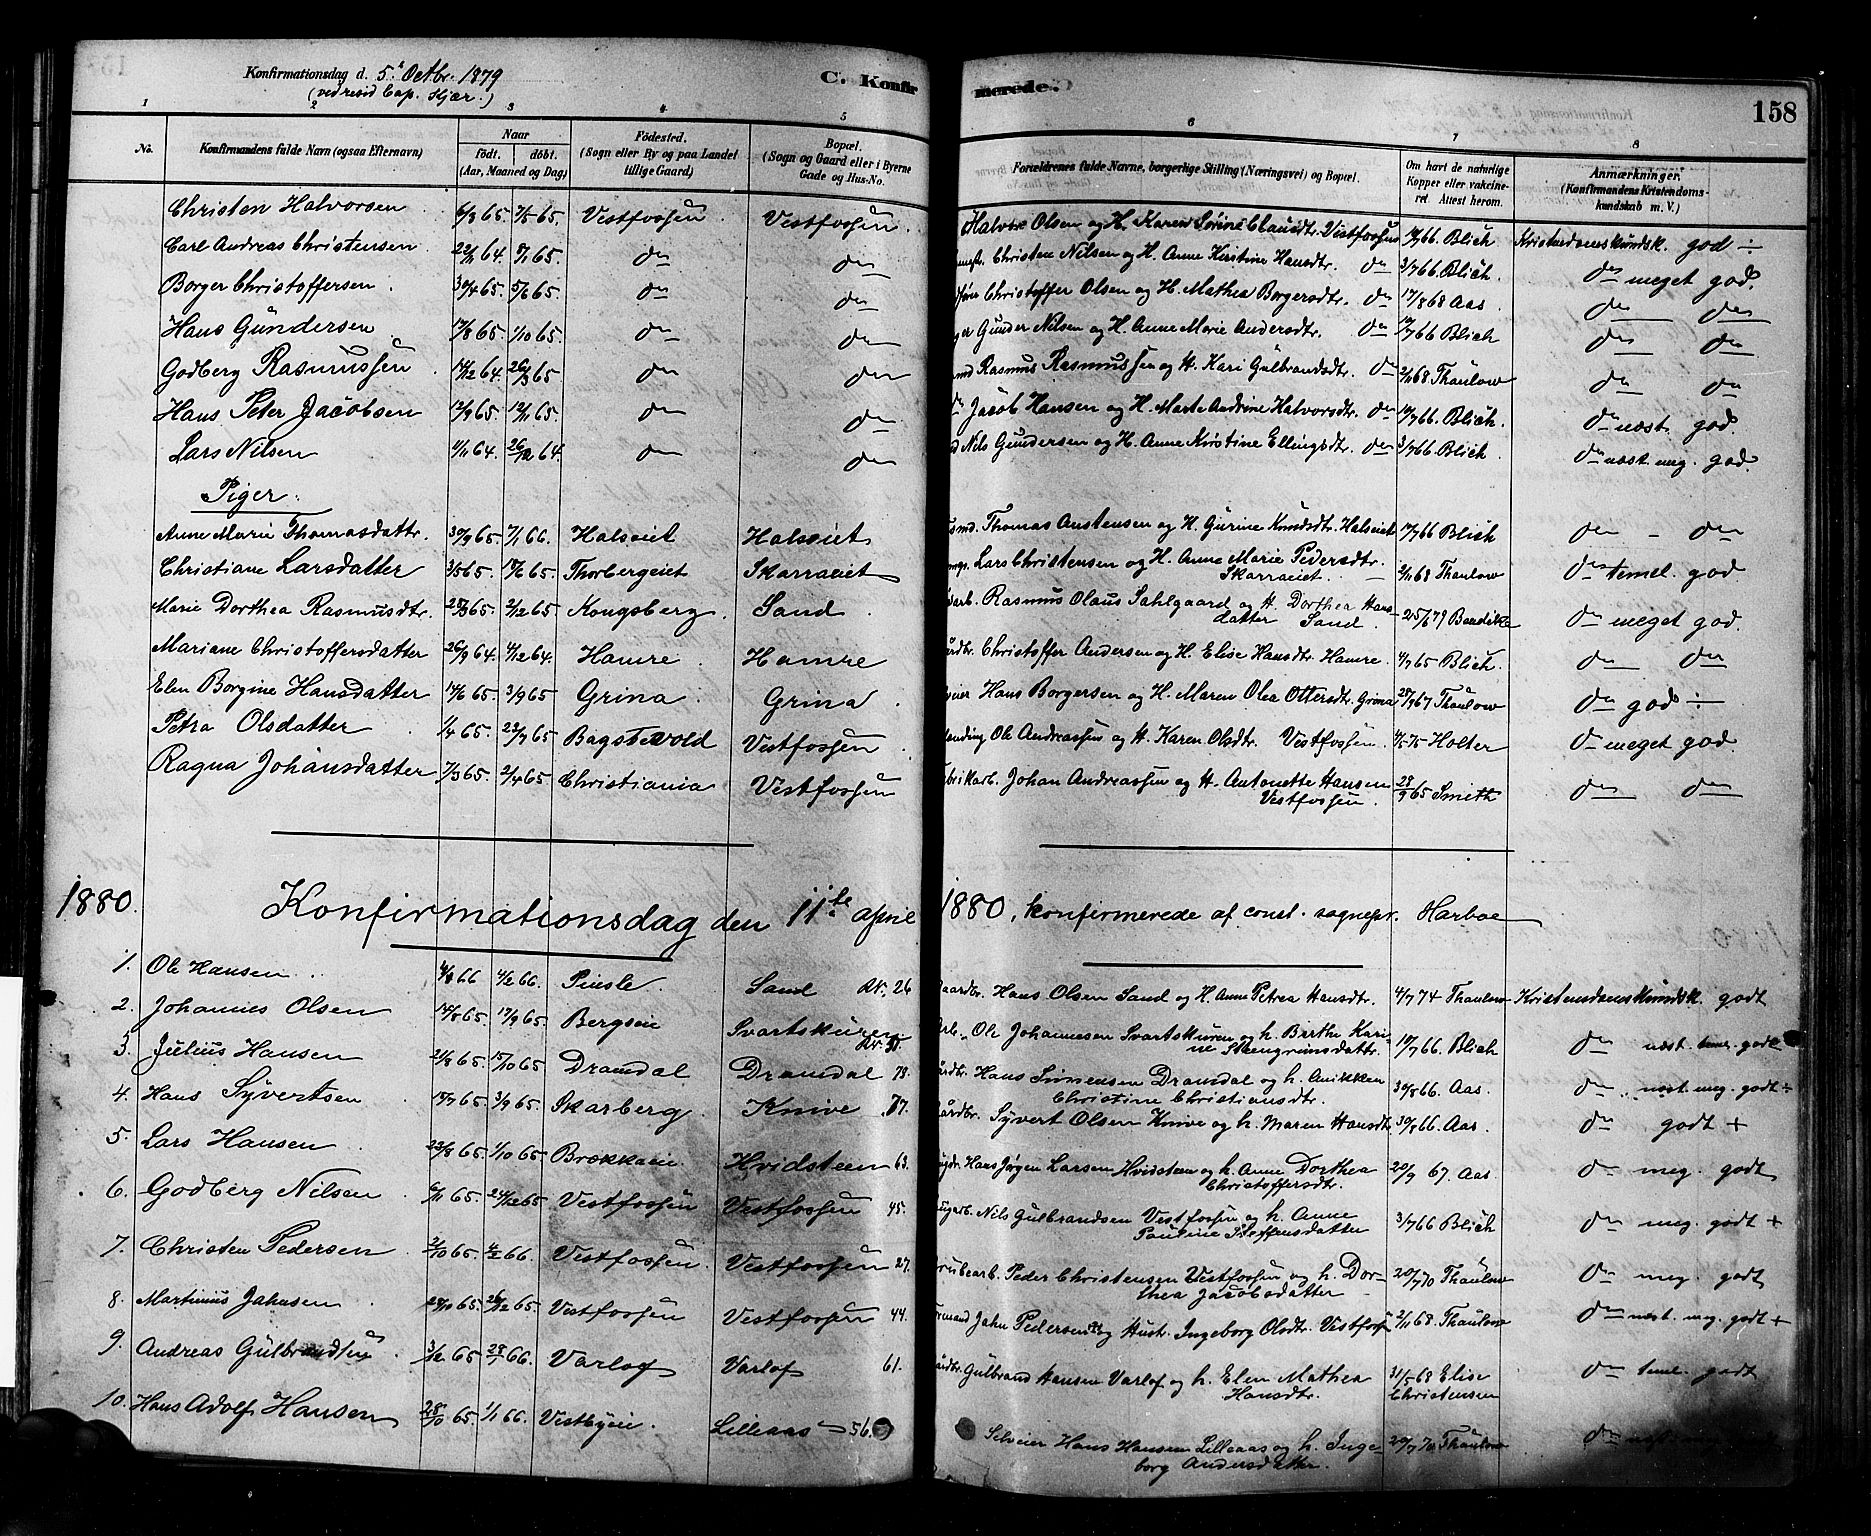 Konfirmationsdag d. 5te Octbr. 1879 C. Konfirmerede. 158
(ved resid. Cap. Kjær.)
1 2 3 4 5 6 7 8
No. Konfirmandens fulde Navn (ogsaa Efternavn) Naar født. døbt. (Aar, Maaned og Dag) Fødested. (Sogn eller By og paa Landet tillige Gaard) Bopæl. (Sogn og Gaard eller i Byerne Gade og Hus-No. Forældrenes fulde Navne, borgerlige Stilling (Næringsvei) og Bopæl. Om havt de naturlige Kopper eller vakcineret. Attest herom. Anmærkninger. (Konfirmandens Kristendomskundskab m. V.)
Christen Halvorsen 6/3 65 7/5 65. Vestfossen Vestfossen. Halvor Olsen og H. Karen Sørine Clausdtr. Vestfossen 66. Blich Kristendomskundsk. god ÷
Carl Andreas Christensen 22/11 64. 7/1 65. do do Christen Nilsen og H. Anne Kirstine Hansdtr. do 3/7 66. Blich. do meget god.
Borger Christoffersen. 30/4 65. 5/6 65. do do Christoffer Olsen og H. Mathea Borgersdtr. do 17/8 68 Aas do do
Hans Gundersen 17/8 65. 1/10 65. do do Gunder Nilsen og H. Anne Marie Andersdtr. do 66 Blich do do
Godberg Rasmussen 14/12 64. 26/3 65 do do Rasmus Rasmussen og H. Kari Gulbrandsdtr. do 2/11 68 Thaulow do do
Hans Peter Jacobsen 12/9 65. 12/11 65. do do Jacob Hansen og H. Marte Andrine Halvorsdtr. do 66. Blich. do næst. god.
Lars Nilsen 11/11 64. 26/12 64. do do Nils Gundersen og H. Anne Kirstine Ellingsdtr. do 3/7 66. Blich. do næst. meg. god.
Piger:
Anne Marie Thomasdattr. 30/9 65. 7/1 66. Halseiet Halseiet Thomas Austensen og H. Gurine Knudsdtr. Halseiet 17/7 66 Blich do - do
Christiane Larsdatter 3/5 65. 65. Thorbergeiet Skarraeiet Lars Christensen og H. Anne Marie Pedersdtr. Skarraeiet. 2/11 68 Thaulow do temel. god
Marie Dorthea Rasmusdtr. 65. 2/12 65 Kongsberg. Sand. Rasmus Olaus Sahlgaard og H. Dorthea Hansdatter Sand. 25/6 79 do meget god.
Mariane Christoffersdatter 26/9 64. 4/12 64. Hamre. Hamre Christoffer Andersen og H. Elise Hansdtr. Hamre. 4/7 65 Blich. do do
Elen Borgine Hansdatter 14/6 65. 3/9 65 Grina. Grina. Hans Borgersen og H. Maren Olea Ottersdtr. Grina 67 Thaulow do god ÷
Petra Olsdatter 1/4 65. 23/7 65 Bagstevold Vestfossen. Ole Andreassen og H. Karen Olsdtr. Vestfossen. 75 Holter do meget god
Ragna Johansdatter 7/3 65. 2/4 65 Christiania Vestfossen Johan Andreassen og H. Antonette Hansen Vestfossen. 28/9 65 Smith do do
1880. Konfirmationsdag den 11te april 1880, konfirmerede af const. sognepr. Harboe
1. Ole Hansen 66 4/2 66. Pinsle. Sand Nr. 26 Gaardbr. Hans Olsen Sand og H. Anne Petrea Hansdtr. 4/7 74 Thaulow Kristendomskundsk. godt
2. Johannes Olsen 14/8 65. 17/9 65. Bergseie Svartskuren Ole Johannesen Svartskuren og h. Birthe Karine Stengrimsdatter. 66. Blich do næst. temel. godt
3. Julius Hansen 21/8 65. 15/10 65 Dramdal Dramdal 78. Hans Simensen Dramdal og h. Anikken Christine Christiansdtr. 30/8 66. Aas. do næst. meg. godt ÷
4. Hans Syvertsen 15/7 65. 3/9 65. Skarberg. Knive 77. Syvert Olsen Knive og h. Maren Hansdtr 30/8 66. Aas. do godt +
5. Lars Hansen 65. 1/10 65. Brækkaeie. Hvidsteen 63. Hans Jørgen Larsen Hvidsteen og h. Anne Dorthea Christoffersdtr. 20/9 67. Aas. do meg. godt
6. Godberg Nilsen 6/11 65. 24/12 65. Vestfossen Vestfossen 45. Nils Gulbrandsen Vestfossen og h. Anne Pauline Steffensdatter 3/7 66 Blich do meg. godt +
7. Christen Pedersen 2/10 65. 4/2 66. Vestfossen. Vestfossen 27. Peder Christensen Vestfossen og h. Dorthea Jacobsdatter 20/7 70 Thaulow do meg. godt
8. Martinius Jahnsen 65. 26/12 65. Vestfossen Vestfossen 44. Jahn Pedersen og Hust. Ingeborg Olsdtr. Vestfossen 2/11 68. Thaulow do næst. meg. godt +
9. Andreas Gulbrandsen. 3/12 65 28/1 66. Varlof Varlof 61. Gulbrand Hansen Varlof og h. Elen Mathea Hansdtr. 31/5 68 Elise Christensen do temel. godt
10. Hans Adolf Hansen 28/10 65. 1/1 66. Vestbyeie. Lilleaas 56. Selveier Hans Hansen Lilleaas og h. Ingeborg Andersdatter. 20/7 70 Thaulow do